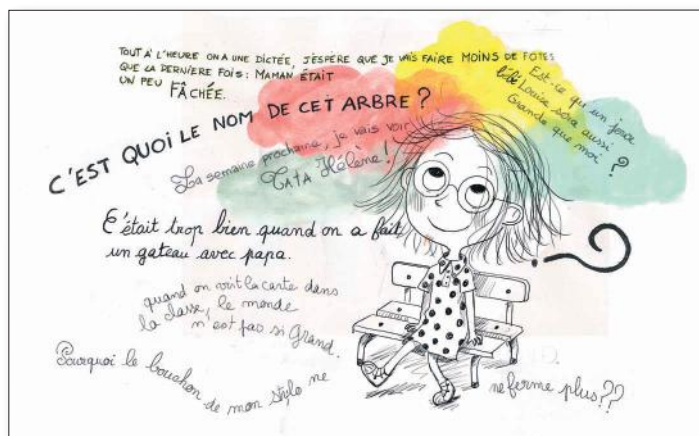 TOUT À L'HEURE ON A UNE DICTÉE, J'ESPÈRE QUE JE VAIS FAIRE MOINS DE FOTES
QUE LA DERNIÈRE FOIS : MAMAN ÉTAIT
UN PEU FÂCHÉE.
Est-ce qu'un jour
bébé Louise sera aussi
Grande que moi ?
C'EST QUOI LE NOM DE CET ARBRE ?
La semaine prochaine, je vais voir
TATA Hélène !
C'était trop bien quand on a fait
un gateau avec papa.
quand on voit la carte dans
la classe, le monde
n'est pas si Grand.
Pourquoi le bouchon
de mon stylo ne
ne ferme plus??